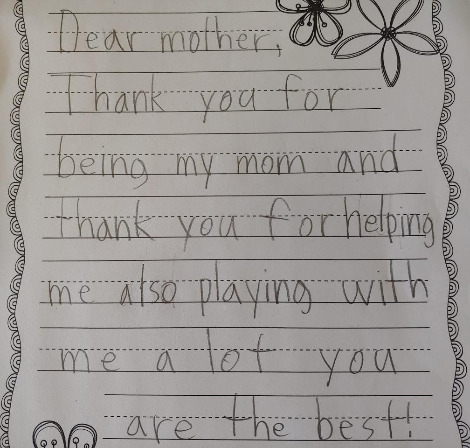 Dear mother,
Thank you for
being my mom and
thank you for helping
me also playing with
me a lot you
are the best!